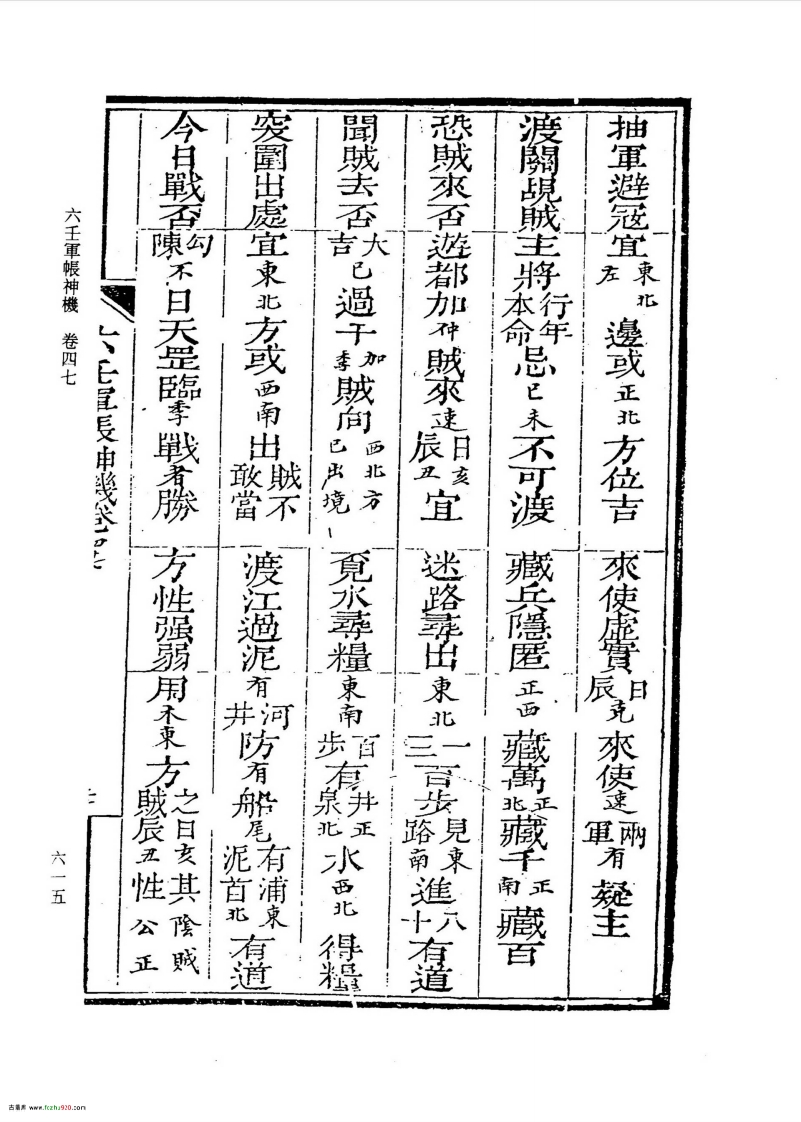 抽軍避冦宜東北左邊或正北方位吉
來使虛實日辰克來使速兩軍有疑主
渡關覘賊主將行年本命忌已未不可渡
藏兵隱匿正西藏萬正北藏千正南藏百
恐賊來否遊都加仲賊來速日亥辰丑宜
迷路尋出東北一百步三見東路南進八十有道
聞賊去否大吉已過干加季賊向西北方已出境
覓水尋糧東南百步有井正泉北水西北得糧
突圍出處宜東北方或西南出賊不敢當
渡江過泥有河井防有船尾有浦東泥首北有道
今日戰否勾陳不日天罡臨季戰者勝
方性强弱用禾東方之日亥賊辰丑其陰賊性公正
六壬軍帳神機卷四七
六壬軍帳神機 卷四七
六一五
古籍库 www.fczhu920.com